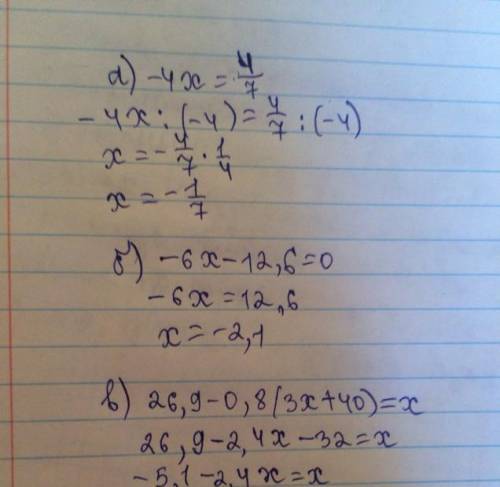 а) -4x = 4/7
-4x : (-4) = 4/7 : (-4)
x = -4/7 · 1/4
x = -1/7
б) -6x - 12,6 = 0
-6x = 12,6
x = -2,1
в) 26,9 - 0,8(3x + 40) = x
26,9 - 2,4x - 32 = x
-5,1 - 2,4x = x